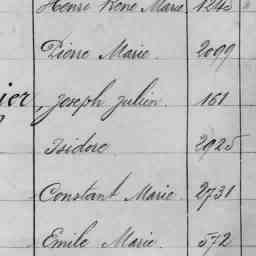 Henri René Marie 1243
Pierre Marie 2099
ier, Joseph Julien 161
Isidore 2925
Constant Marie 2731
Emile Marie 572